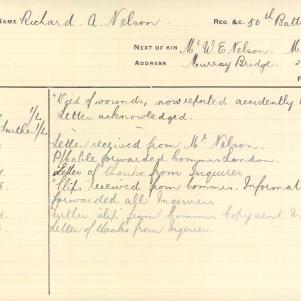 NAME Richard A Nelson. REG &C. 50th Batt
NEXT OF KIN Mr W.E Nelson. M
ADDRESS Murray Bridge.
"Died of wounds, now reported accidently
Letter acknowledged.
Further 1/2
Letter received from Mr Nelson.
forwarded Commrs London.
Letter of thanks from Inquirer
"Slip" received from Commrs. Informat
forwarded all Inquirers
Further slip from Commrs Copy sent In
Letter of thanks from Inquirer.